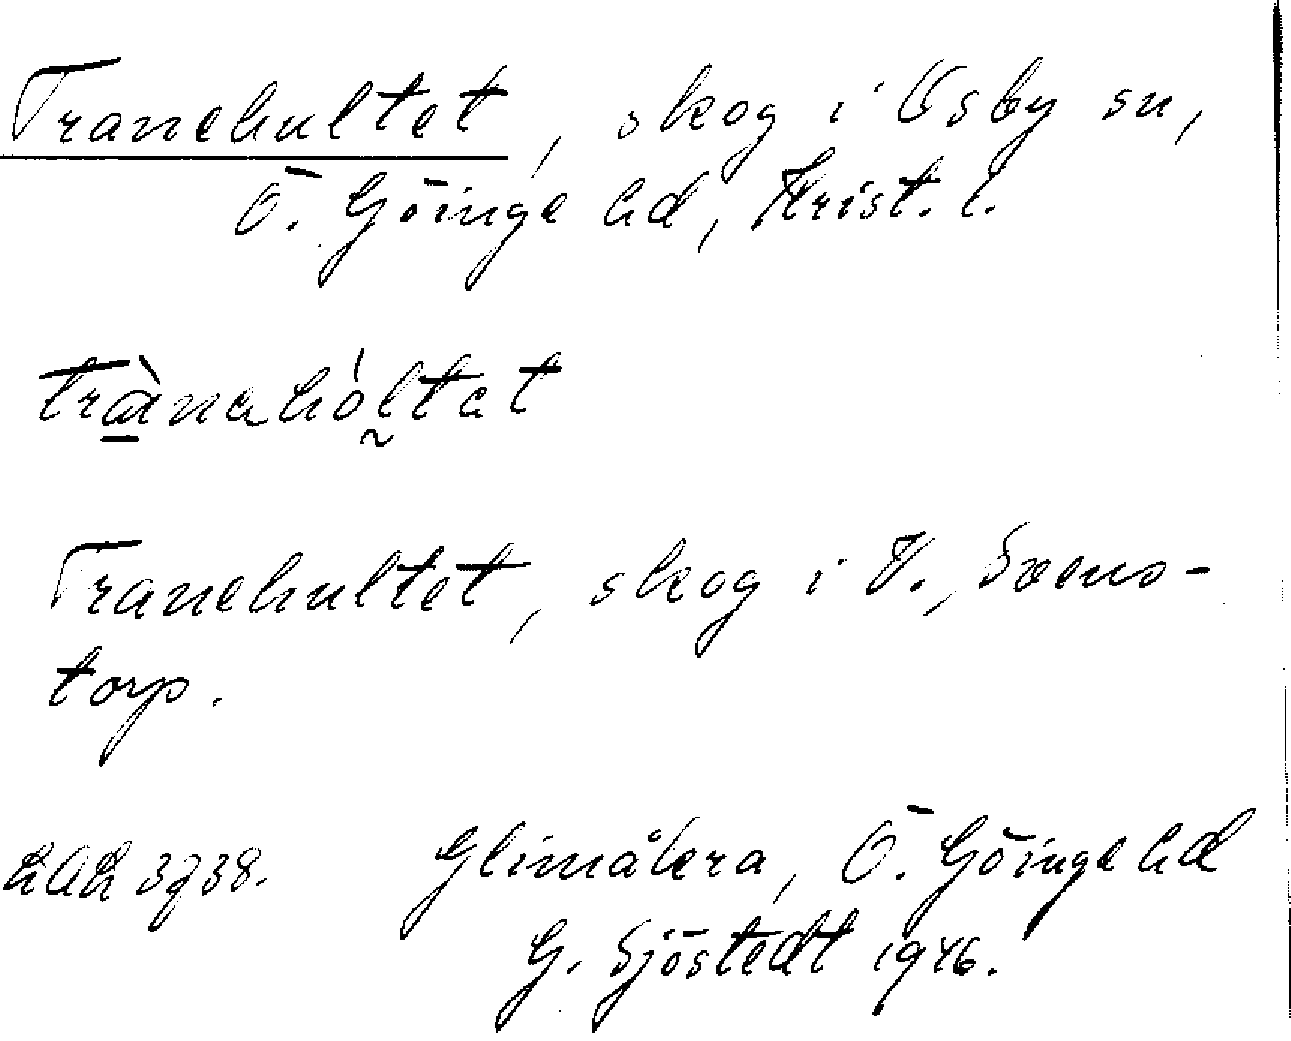 Tranehultet, skog i Osby sn,
Ö. Göinge hd, Krist. l.
trànahóltat
Tranehultet, skog i V. Svens-
torp.
LAL 3738. Glimåkra, Ö. Göinge hd
G. Sjöstedt 1946.